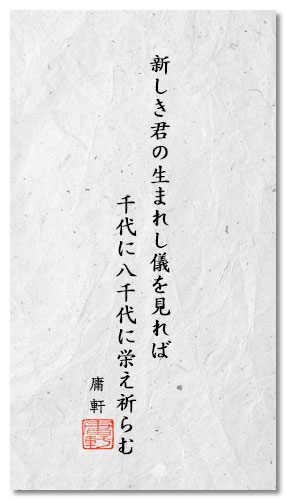 新しき君の生まれし儀を見れば
千代に八千代に栄え祈らむ
庸軒
庸軒